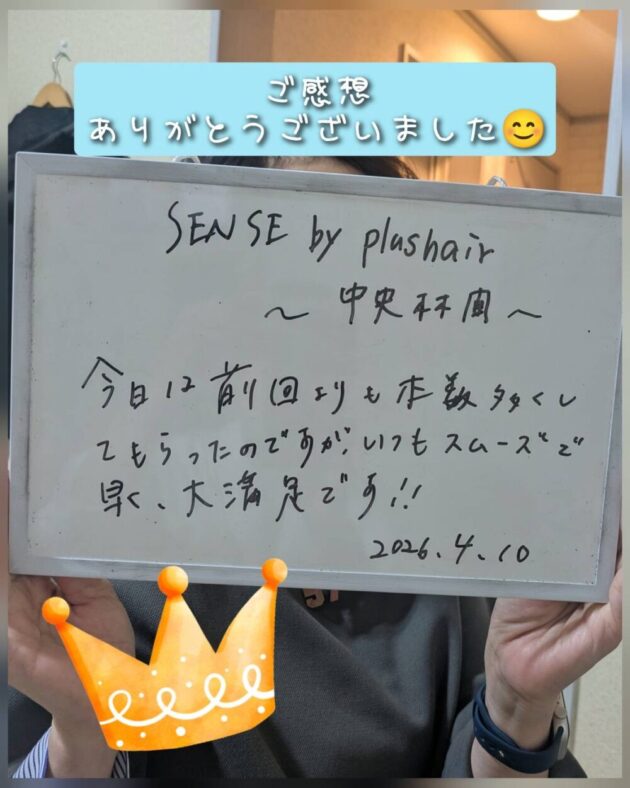 ご感想
ありがとうございました😊
SENSE by plushair
～ 中央林間 ～
今日は前回よりも本数多くし
てもらったのですが、いつもスムーズで
早く、大満足です!!
2026.4.10